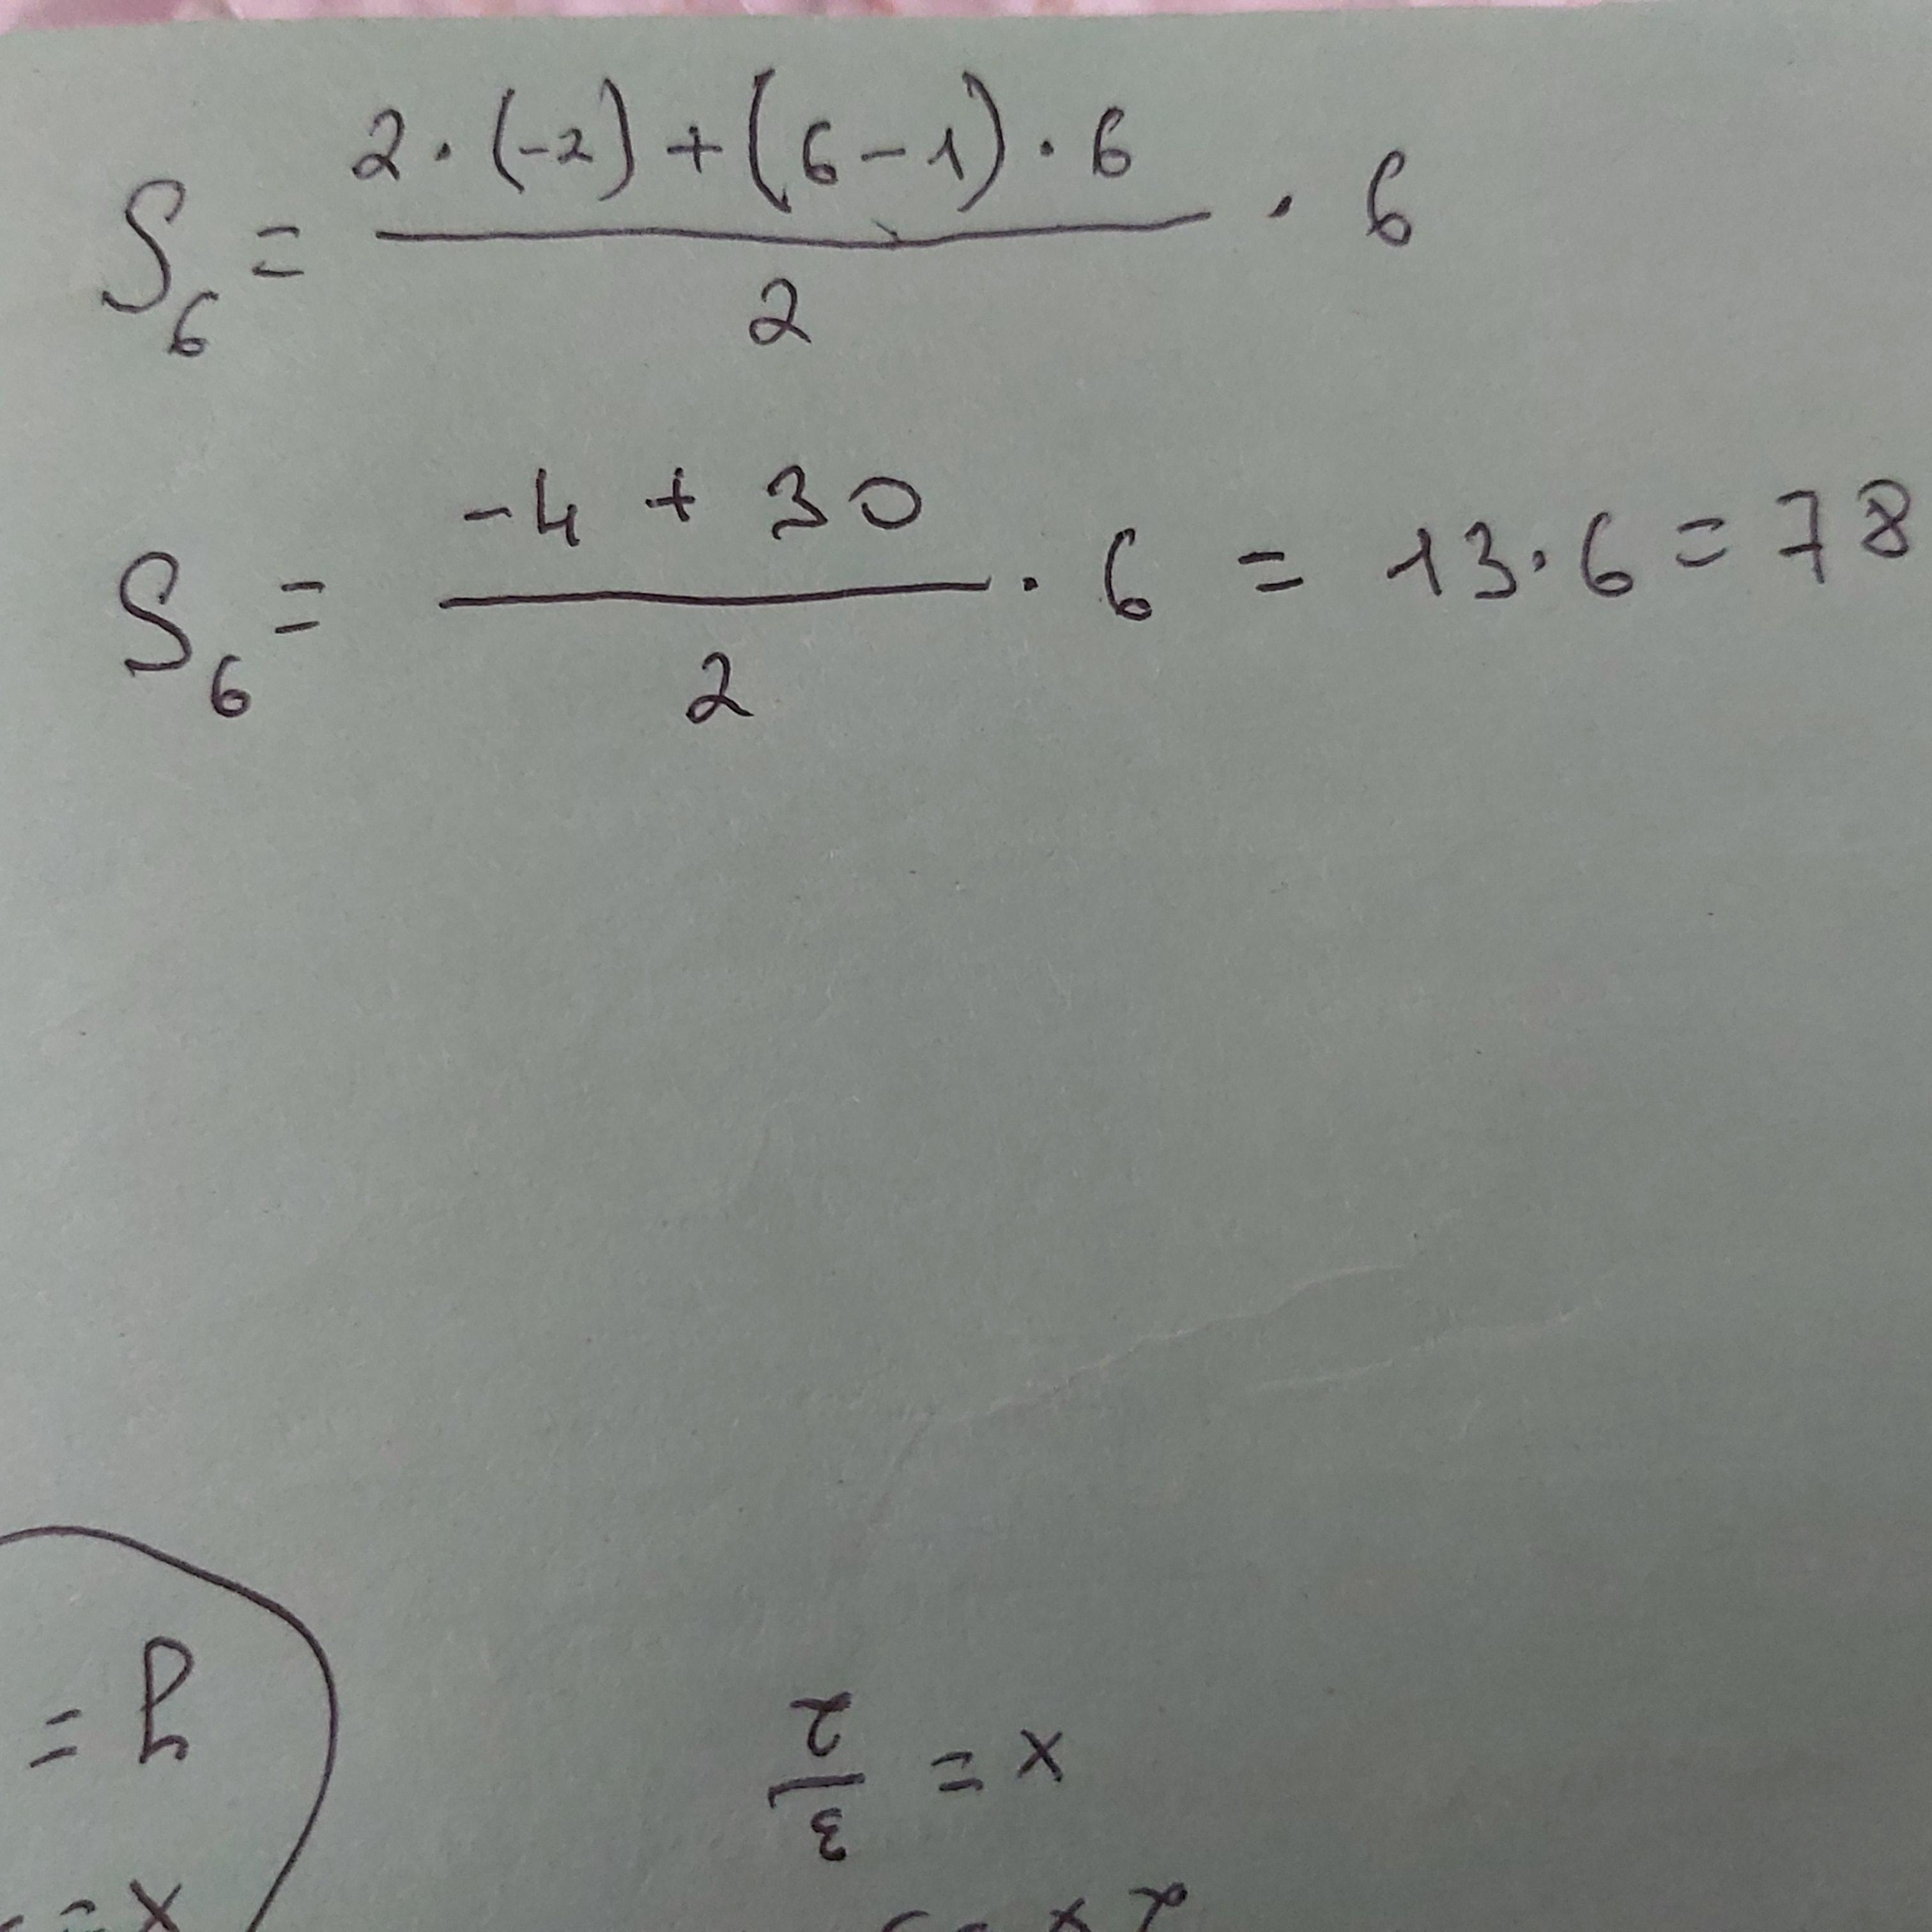 S₆ = (2·(-2)+(6-1)·6)/2 · 6
S₆ = (-4 + 30)/2 · 6 = 13·6 = 78
x = 3/2